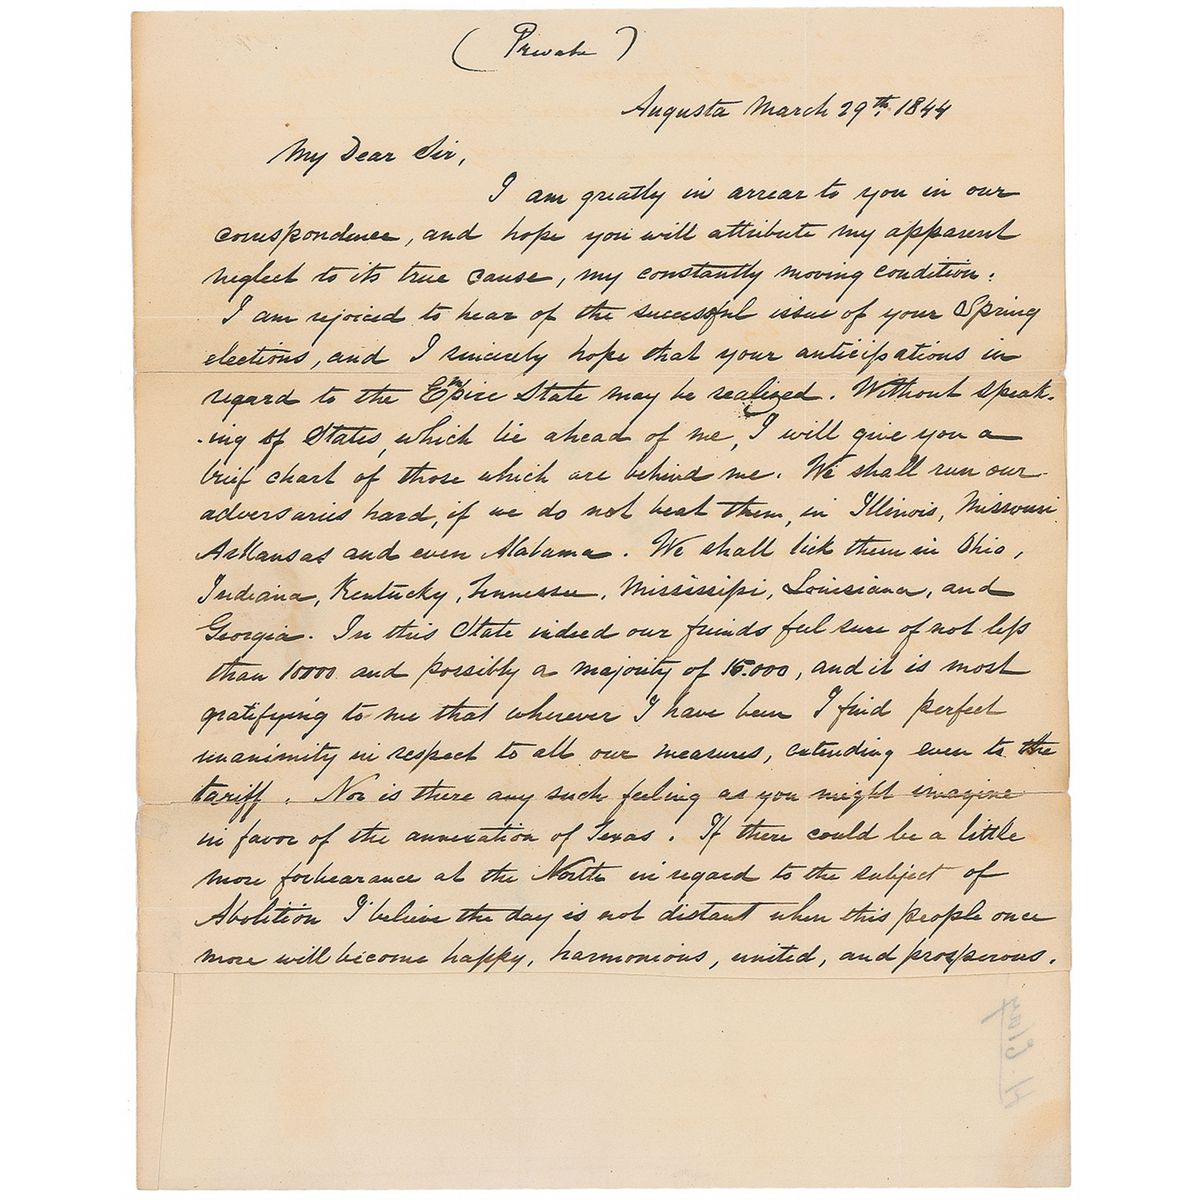 (Private)
Augusta March 29th, 1844
My Dear Sir,
I am greatly in arrear to you in our
correspondence, and hope you will attribute my apparent
neglect to its true cause, my constantly moving condition.
I am rejoiced to hear of the successful issue of your Spring
elections, and I sincerely hope that your anticipations in
regard to the Empire State may be realized. Without speak-
-ing of States, which lie ahead of me, I will give you a
brief chart of those which are behind me. We shall run our
adversaries hard, if we do not beat them, in Illinois, Missouri
Arkansas and even Alabama. We shall lick them in Ohio,
Indiana, Kentucky, Tennessee, Mississippi, Louisiana, and
Georgia. In this State indeed our friends feel sure of not less
than 10000 and possibly a majority of 15.000, and it is most
gratifying to me that wherever I have been I find perfect
unanimity in respect to all our measures, extending even to the
tariff. Nor is there any such feeling as you might imagine
in favor of the annexation of Texas. If there could be a little
more forbearance at the North in regard to the subject of
Abolition I believe the day is not distant when this people once
more will become happy, harmonious, united, and prosperous.